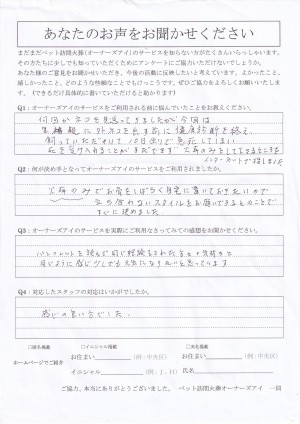 あなたのお声をお聞かせください
まだまだペット訪問火葬(オーナーズアイ)のサービスを知らない方がたくさんいらっしゃいます。
その方たちに少しでも知っていただくためにアンケートにご協力いただけないでしょうか。
あなた様のご意見をお聞かせいただき、今後の活動に反映したいと考えています。よかったこと、
嬉しかったこと、どのような些細なことでもけっこうです。ぜひご協力をよろしくお願いいたします。
(できるだけ具体的に書いていただけると助かります)
Q1:オーナーズアイのサービスをご利用される前に悩んでいたことをお教えください。
何回かネコを見送ってきましたが今回は
健康診断を終え、
飼っていただけで10日余りで急死してしまい
死を受け入れることがまだできず火葬のみをしてもらうところを
インターネットで捜しました
Q2:何が決め手となってオーナーズアイのサービスをご利用されましたか。
火葬のみでお骨をしばらく自宅に置いておきたいので
その合わないスタイルをお願いできるとのことで
すぐに決めました
Q3:オーナーズアイのサービスを実際にご利用なさってみての感想をお聞かせください。
パンフレットを読んで同じ経験をされた方々の気持ちと
同じように感じ少しでも元気になりたいと思っています
Q4:対応したスタッフの対応はいかがでしたか。
感じの良い方でした。
□匿名掲載 □イニシャル掲載 □実名掲載
お住まい (例:中央区) お住まい (例:中央区)
ホームページでご紹介
イニシャル (例:J、H) 氏名
ご協力、本当にありがとうございました。 ペット訪問火葬オーナーズアイ 一同